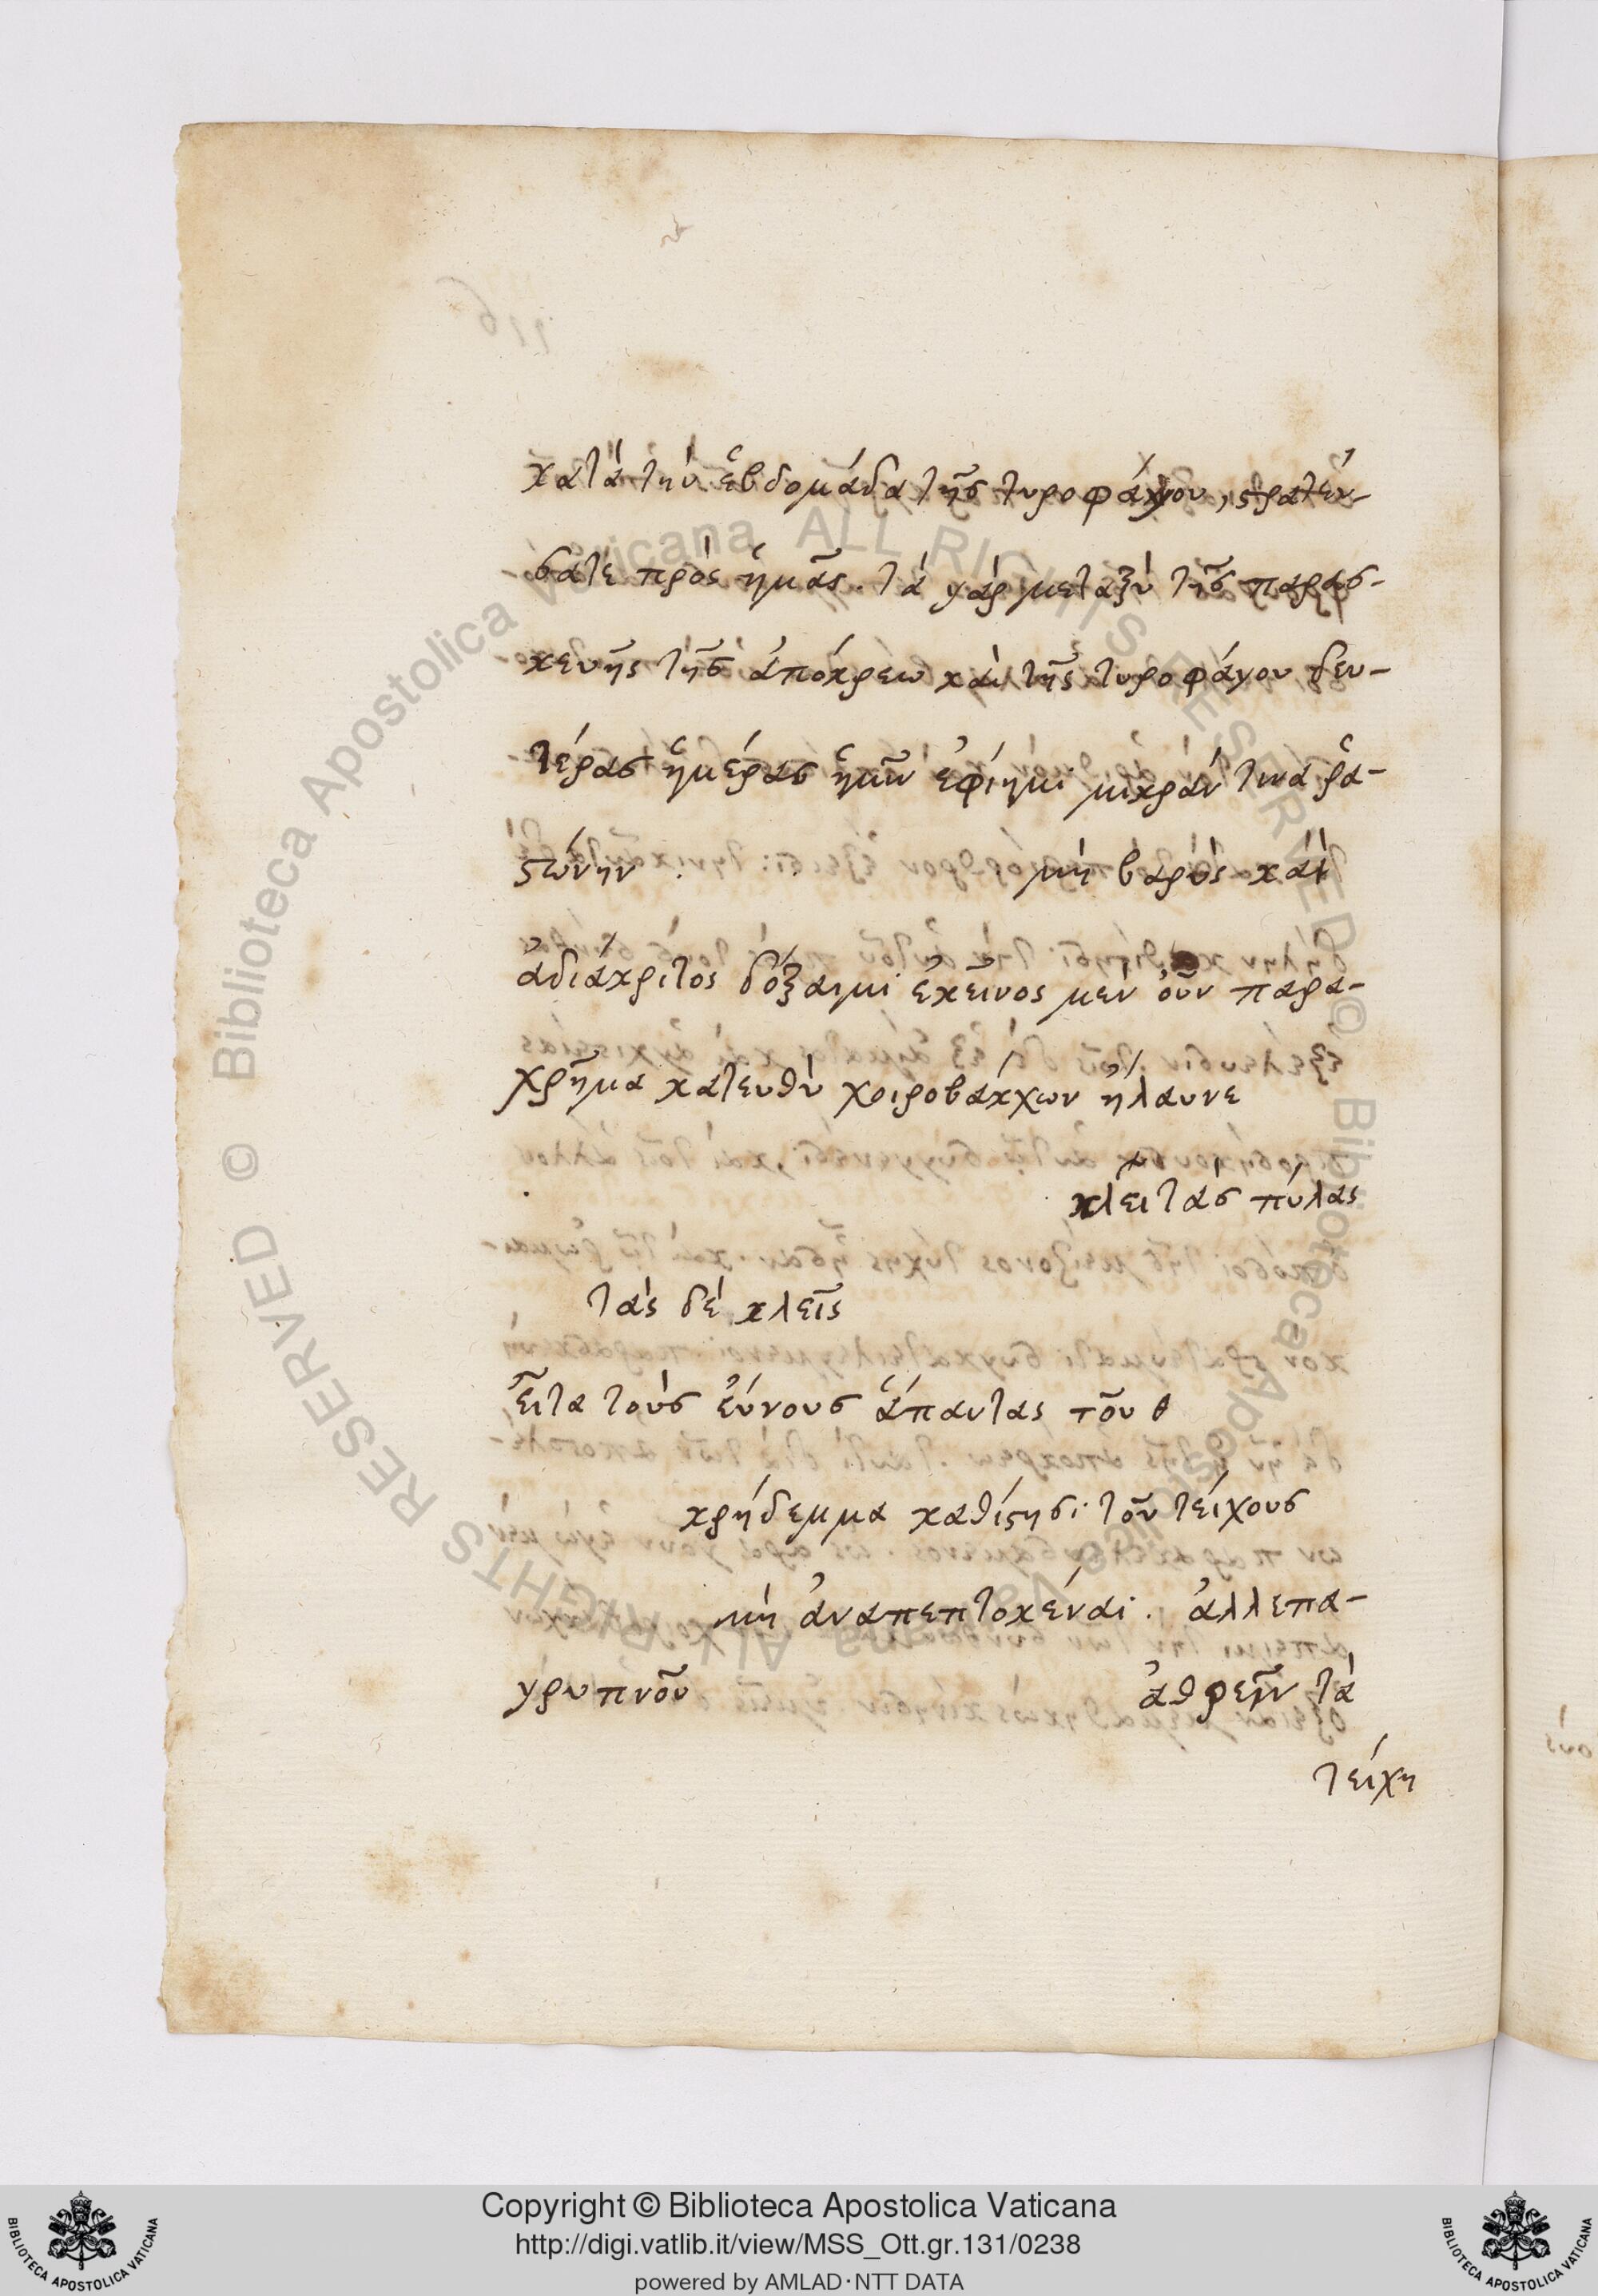 κατὰ τὴν ἑβδομάδα τῆς τυροφάγου, στρατεύ-
σατε πρὸς ἡμᾶς. τὰ γὰρ μεταξὺ τῆς παρασ-
κευῆς τῆς ἀπόκρεω καὶ τῆς τυροφάγου δευ-
τέρας ἡμέρας ἡμῖν ἐφίημι μικράν τινα ῥα-
στώνην . μὴ βαρὺς καὶ
ἀδιάκριτος δόξαιμι ἐκεῖνος μὲν οὖν παρα-
χρῆμα κατευθὺ χοιροβάκχων ἤλαυνε
κλεῖ τὰς πύλας
τὰς δὲ κλεῖς
εἶτα τοὺς εὔνους ἅπαντας τοῦ θ
κρήδεμμα καθίστησι τοῦ τείχους
μὴ ἀναπεπτοκέναι. ἀλλεπα-
γρυπνοῦ ἀθρεῖν τὰ
τείχη
Copyright © Biblioteca Apostolica Vaticana
http://digi.vatlib.it/view/MSS_Ott.gr.131/0238
powered by AMLAD·NTT DATA
BIBLIOTECA APOSTOLICA VATICANA
BIBLIOTECA APOSTOLICA VATICANA
© Biblioteca Apostolica Vaticana ALL RIGHTS RESERVED
© Biblioteca Apostolica Vaticana ALL RIGHTS RESERVED